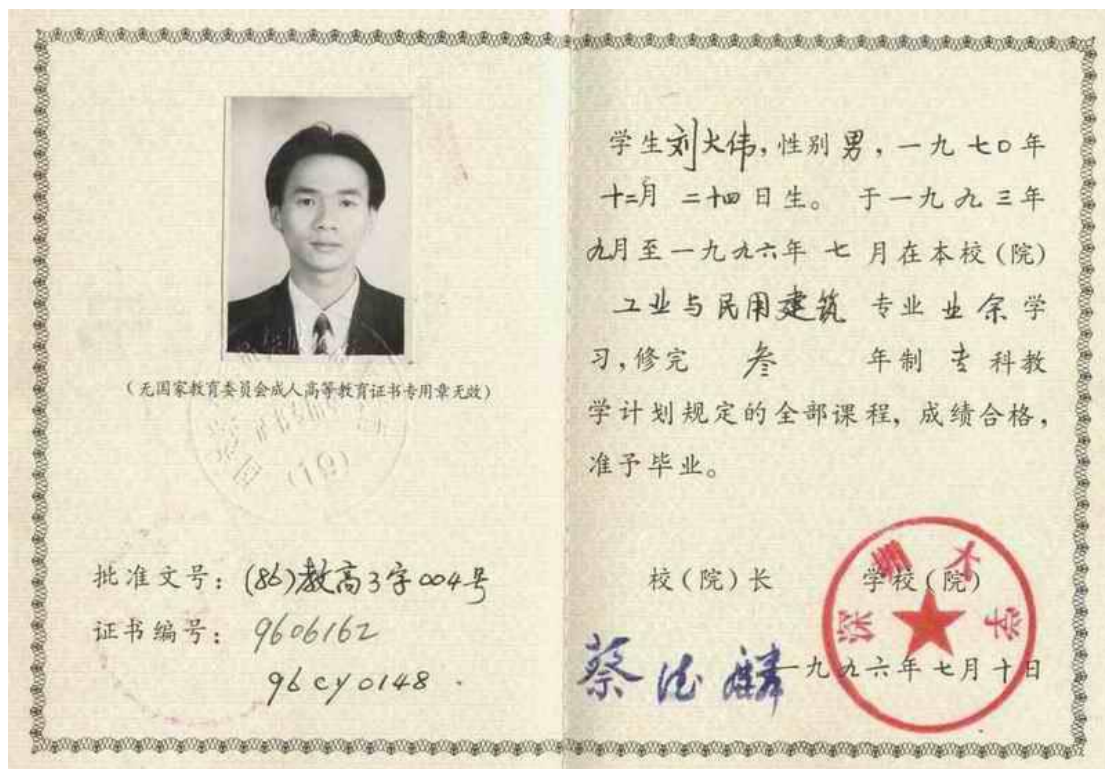 (无国家教育委员会成人高等教育证书专用章无效)
(19)
批准文号：(86)教高3字004号
证书编号：9606162
96cy0148.
学生刘大伟，性别男，一九七〇年
十二月二十四日生。于一九九三年
九月至一九九六年七月在本校(院)
工业与民用建筑专业业余学
习，修完叁年制专科教
学计划规定的全部课程，成绩合格，
准予毕业。
校(院)长 学校(院)
深圳大学
蔡德麟
一九九六年七月十日